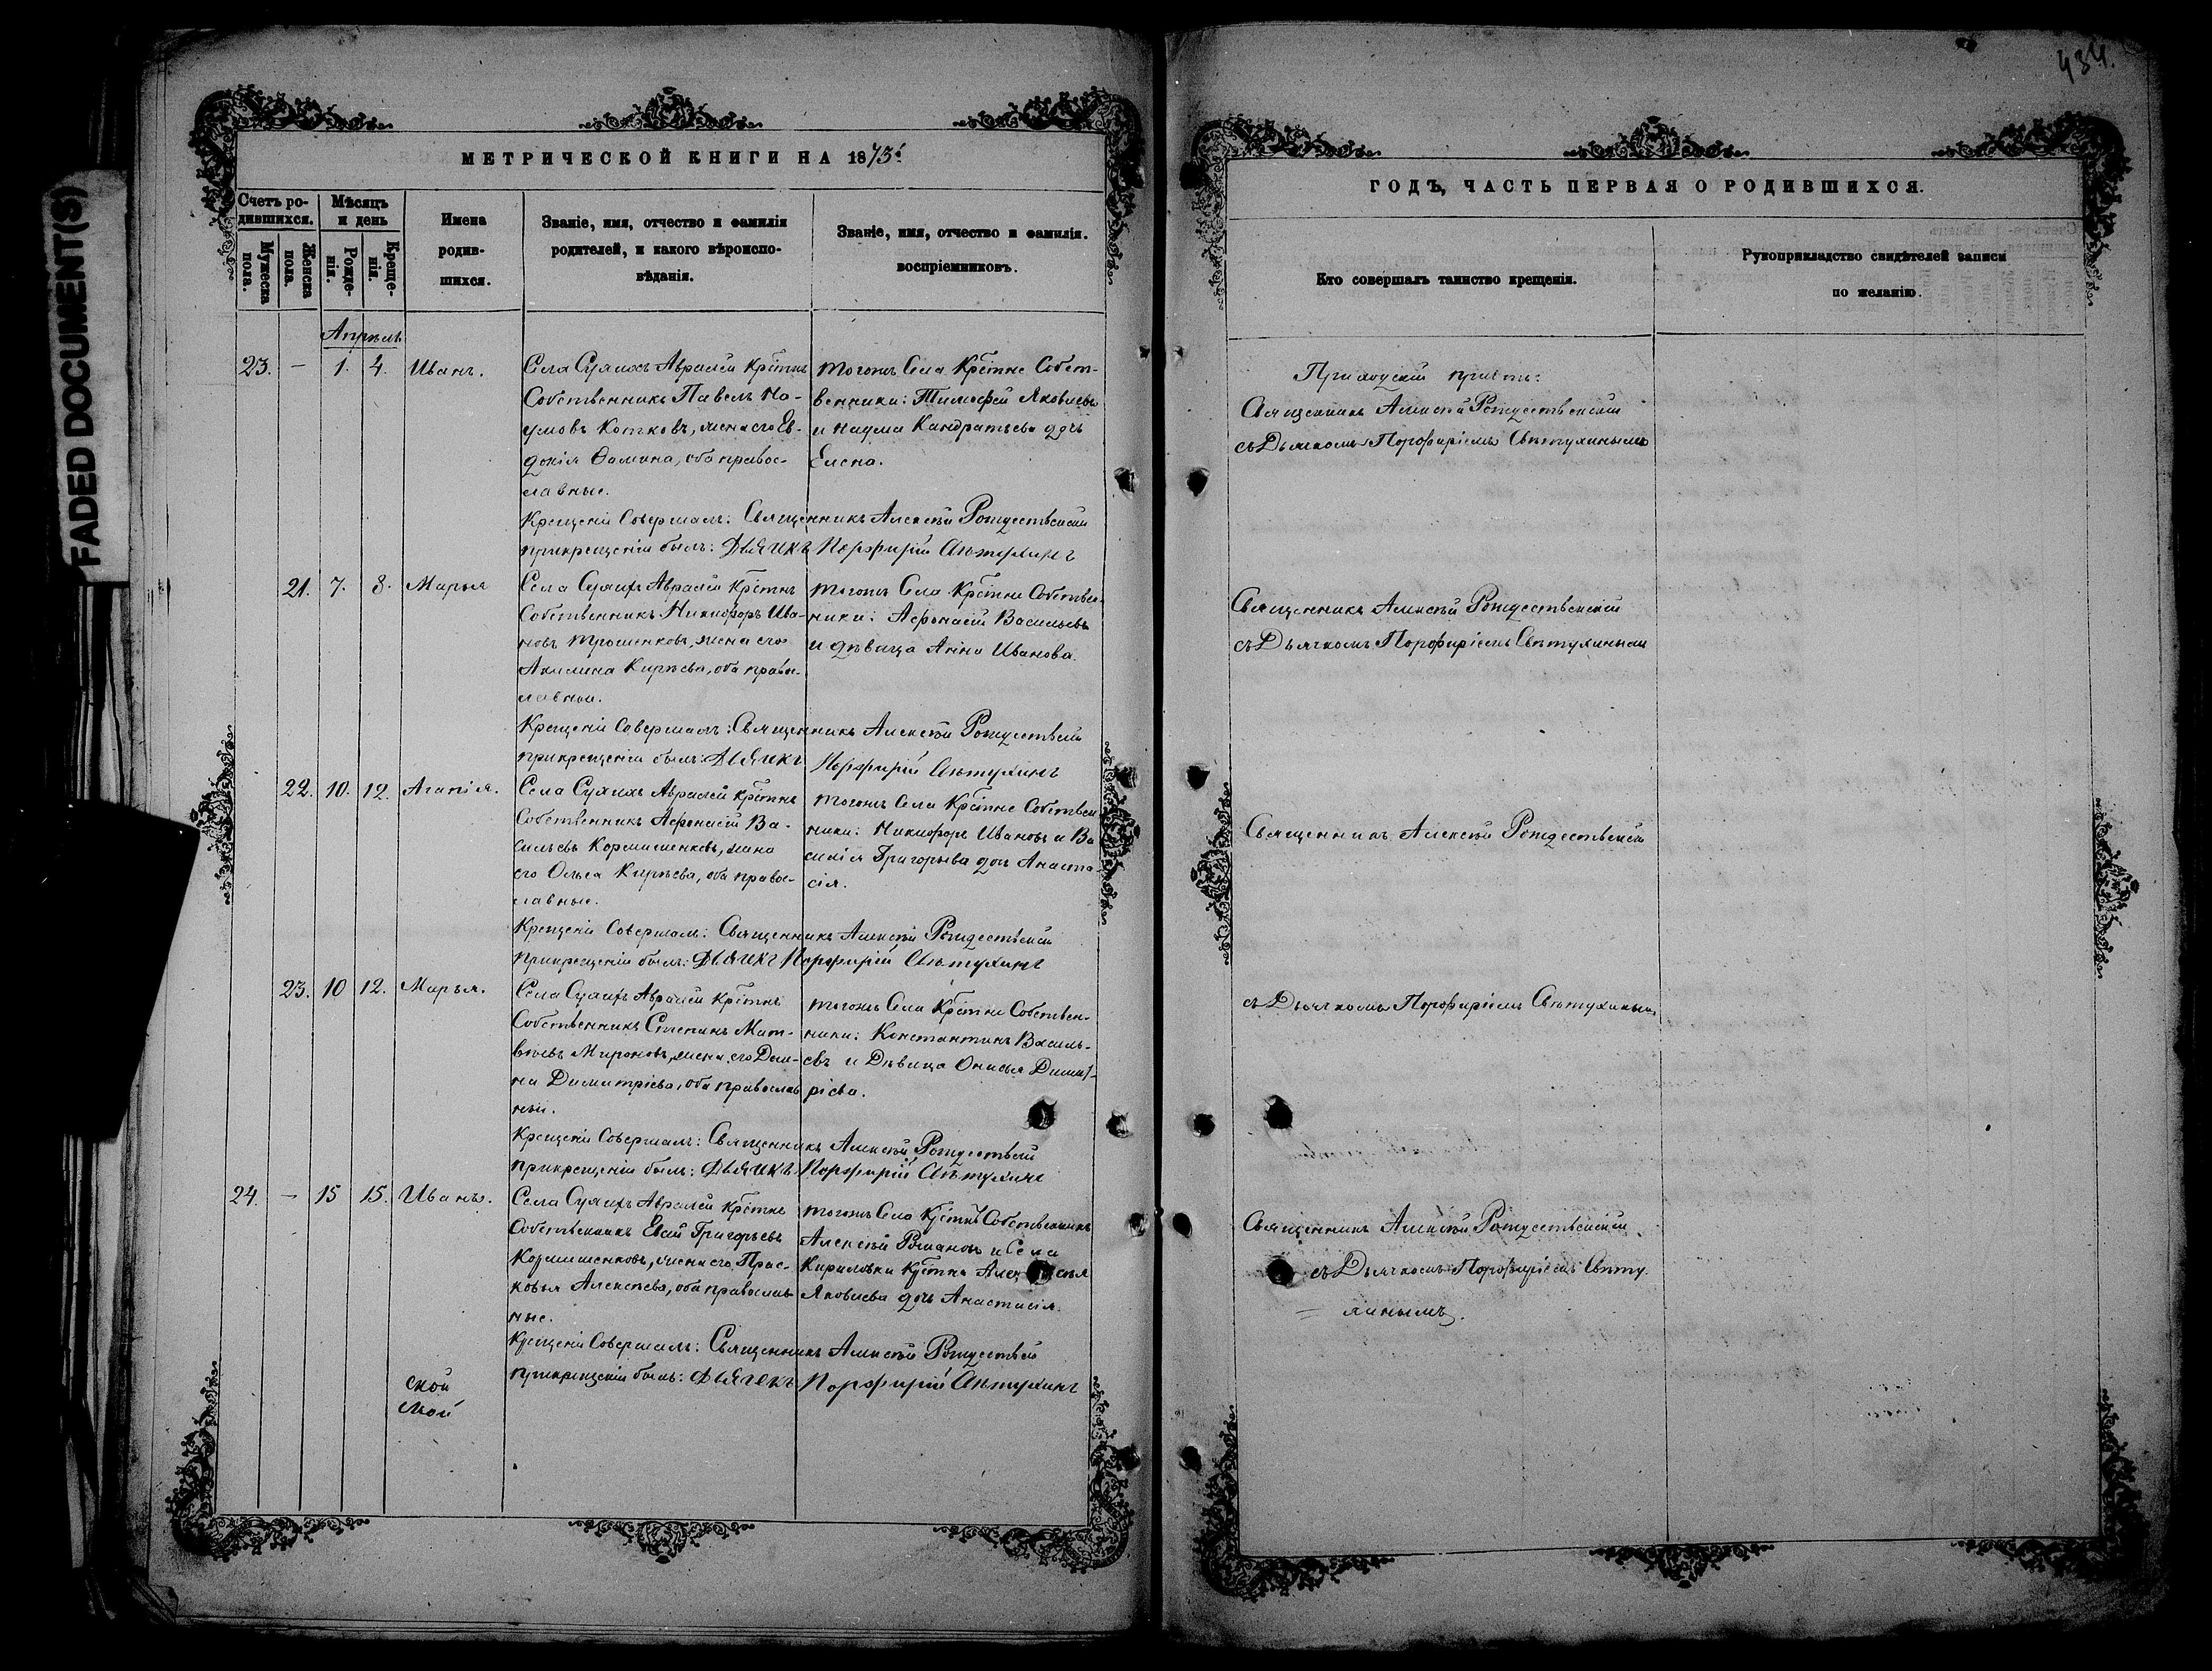 434.
FADED DOCUMENT(S)
МЕТРИЧЕСКОЙ КНИГИ НА 1873й
Счетъ ро-
дившихся.
Мужеска
пола.
Женска
пола.
Мѣсяцъ
и день
Рожде-
нія.
Креще-
нія.
Имена
родив-
шихся.
Званіе, имя, отчество и фамилія
родителей, и какого вѣроиспо-
вѣданія.
Званіе, имя, отчество и фамилія.
воспріемниковъ.
Апрѣль
23. — 1. 4. Иванъ.
Села Сухихъ Авралей Крѣстнъ
Собственникъ Павелъ На-
умовъ Котковъ, жена его Ев-
докія Ѳомина, оба правос-
лавные.
тогожъ Села Крѣстне Собст-
венники: Тимофей Яковлевъ
и Наума Кандратьева дочь
Елена.
Крещеніе Совершалъ: Священникъ Алексѣй Рождественскій
прикрещеніи былъ: Дьячекъ Порфирій Свѣтухинъ
21. 7. 8. Марья
Села Сухихъ Авралей Крѣстнъ
Собственникъ Никифоръ Ива-
новъ Трошенковъ, жена его
Акилина Кирѣева, оба право-
славныи.
тогожъ Села Крѣстне Собствен-
ники: Афонасій Васильевъ
и дѣвица Анна Иванова.
Крещеніе Совершалъ: Священникъ Алексѣй Рождествскій
прикрещеніи былъ: Дьячекъ Порфирій Свѣтухинъ
22. 10. 12. Агапія.
Села Сухихъ Авралей Крѣстнъ
Собственникъ Афонасій Ва-
сильевъ Кормишенковъ, жена
его Ольга Кирѣева, оба правос-
лавные.
тогожъ Села Крѣстне Собствен
ники: Никифоръ Ивановъ и Ва
силія Григорьева дочь Анаста-
сія.
Крещеніе Совершалъ: Священникъ Алексѣй Рождественскій
Прикрещеніи былъ: Дьячекъ Порфирій Свѣтухинъ
23. 10 12. Марья.
Села Сухихъ Авралей Крѣстнъ
Собственникъ Степанъ Мат-
вѣевъ Мироновъ, жена его Дом-
на Димитріева, оба православ
ныи.
тогожъ Села Крѣстне Собствен-
ники: Константинъ Василь-
евъ и Дѣвица Онисья Димит-
ріева.
Крещеніе Совершалъ: Священникъ Алексѣй Рождествскій
прикрещеніи былъ: Дьячекъ Порфирій Свѣтухинъ
24. — 15 15. Иванъ.
Села Сухихъ Авралей Крѣстнъ
Собственникъ Евсей Григорьевъ
Кормишенковъ, жена его Прас-
ковья Алексѣева, оба православ-
ные.
тогожъ Села Крѣстнъ Собственникъ
Алексѣй Романовъ и Села
Кириловки Крѣстна
Яковлева дочь Анастасія.
Крещеніе Совершалъ: Священникъ Алексѣй Рождествскій
прикрещеніи былъ: Дьячекъ Порфирій Свѣтухинъ
ской
ской
ГОДЪ, ЧАСТЬ ПЕРВАЯ О РОДИВШИХСЯ.
Кто совершалъ таинство крещенія.
Рукоприкладство свидѣтелей записи
по желанію.
Приходскій причтъ:
Священникъ Алексѣй Рождественскій
съ Дьячкомъ Порфиріемъ Свѣтухинымъ
Священникъ Алексѣй Рождественскій
съ Дьячкомъ Порфиріемъ Свѣтухинымъ
Священникъ Алексѣй Рождественскій
съ Дьячкомъ Порфиріемъ Свѣтухинымъ
Священникъ Алексѣй Рождественскій
съ Дьячкомъ Порфиріемъ Свѣту-
= хинымъ.